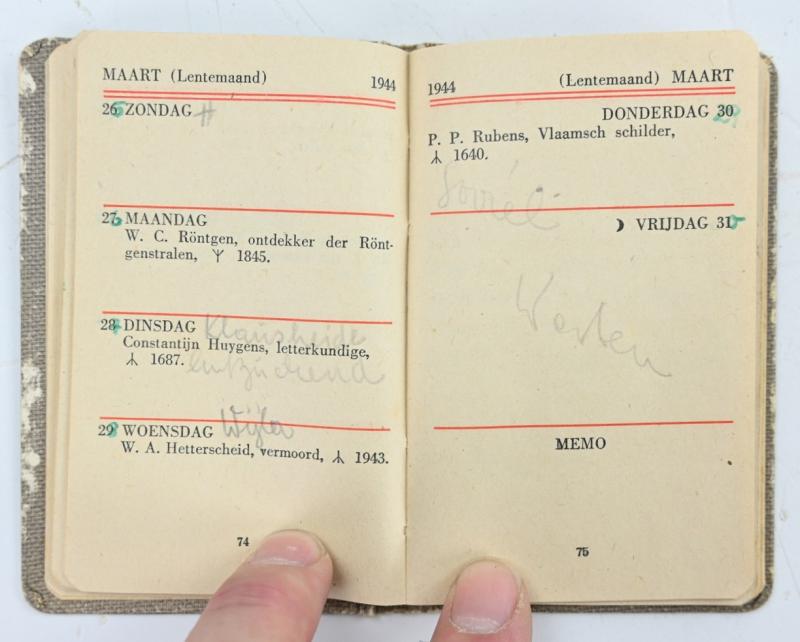 MAART (Lentemaand) 1944
26 ZONDAG
27 MAANDAG
W. C. Röntgen, ontdekker der Rönt-
genstralen, ᛉ 1845.
28 DINSDAG Klausheide
Constantijn Huygens, letterkundige,
ᛣ 1687.
entzückend
29 WOENSDAG Wyler
W. A. Hetterscheid, vermoord, ᛣ 1943.
74
1944 (Lentemaand) MAART
DONDERDAG 30
P. P. Rubens, Vlaamsch schilder,
ᛣ 1640.
☽ VRIJDAG 31
Westen
MEMO
75